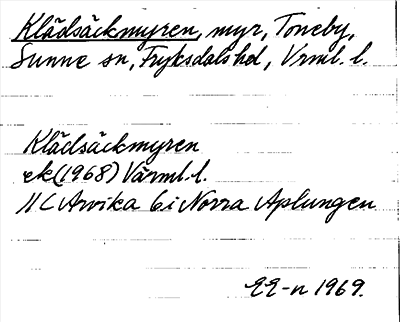 Klädsäckmyren, myr, Toneby,
Sunne sn, Fryksdals hd, Vrml. l.
Klädsäckmyren
ek (1968) Värml. l.
11 C Arvika 6 i Norra Aplungen
EE-n 1969.